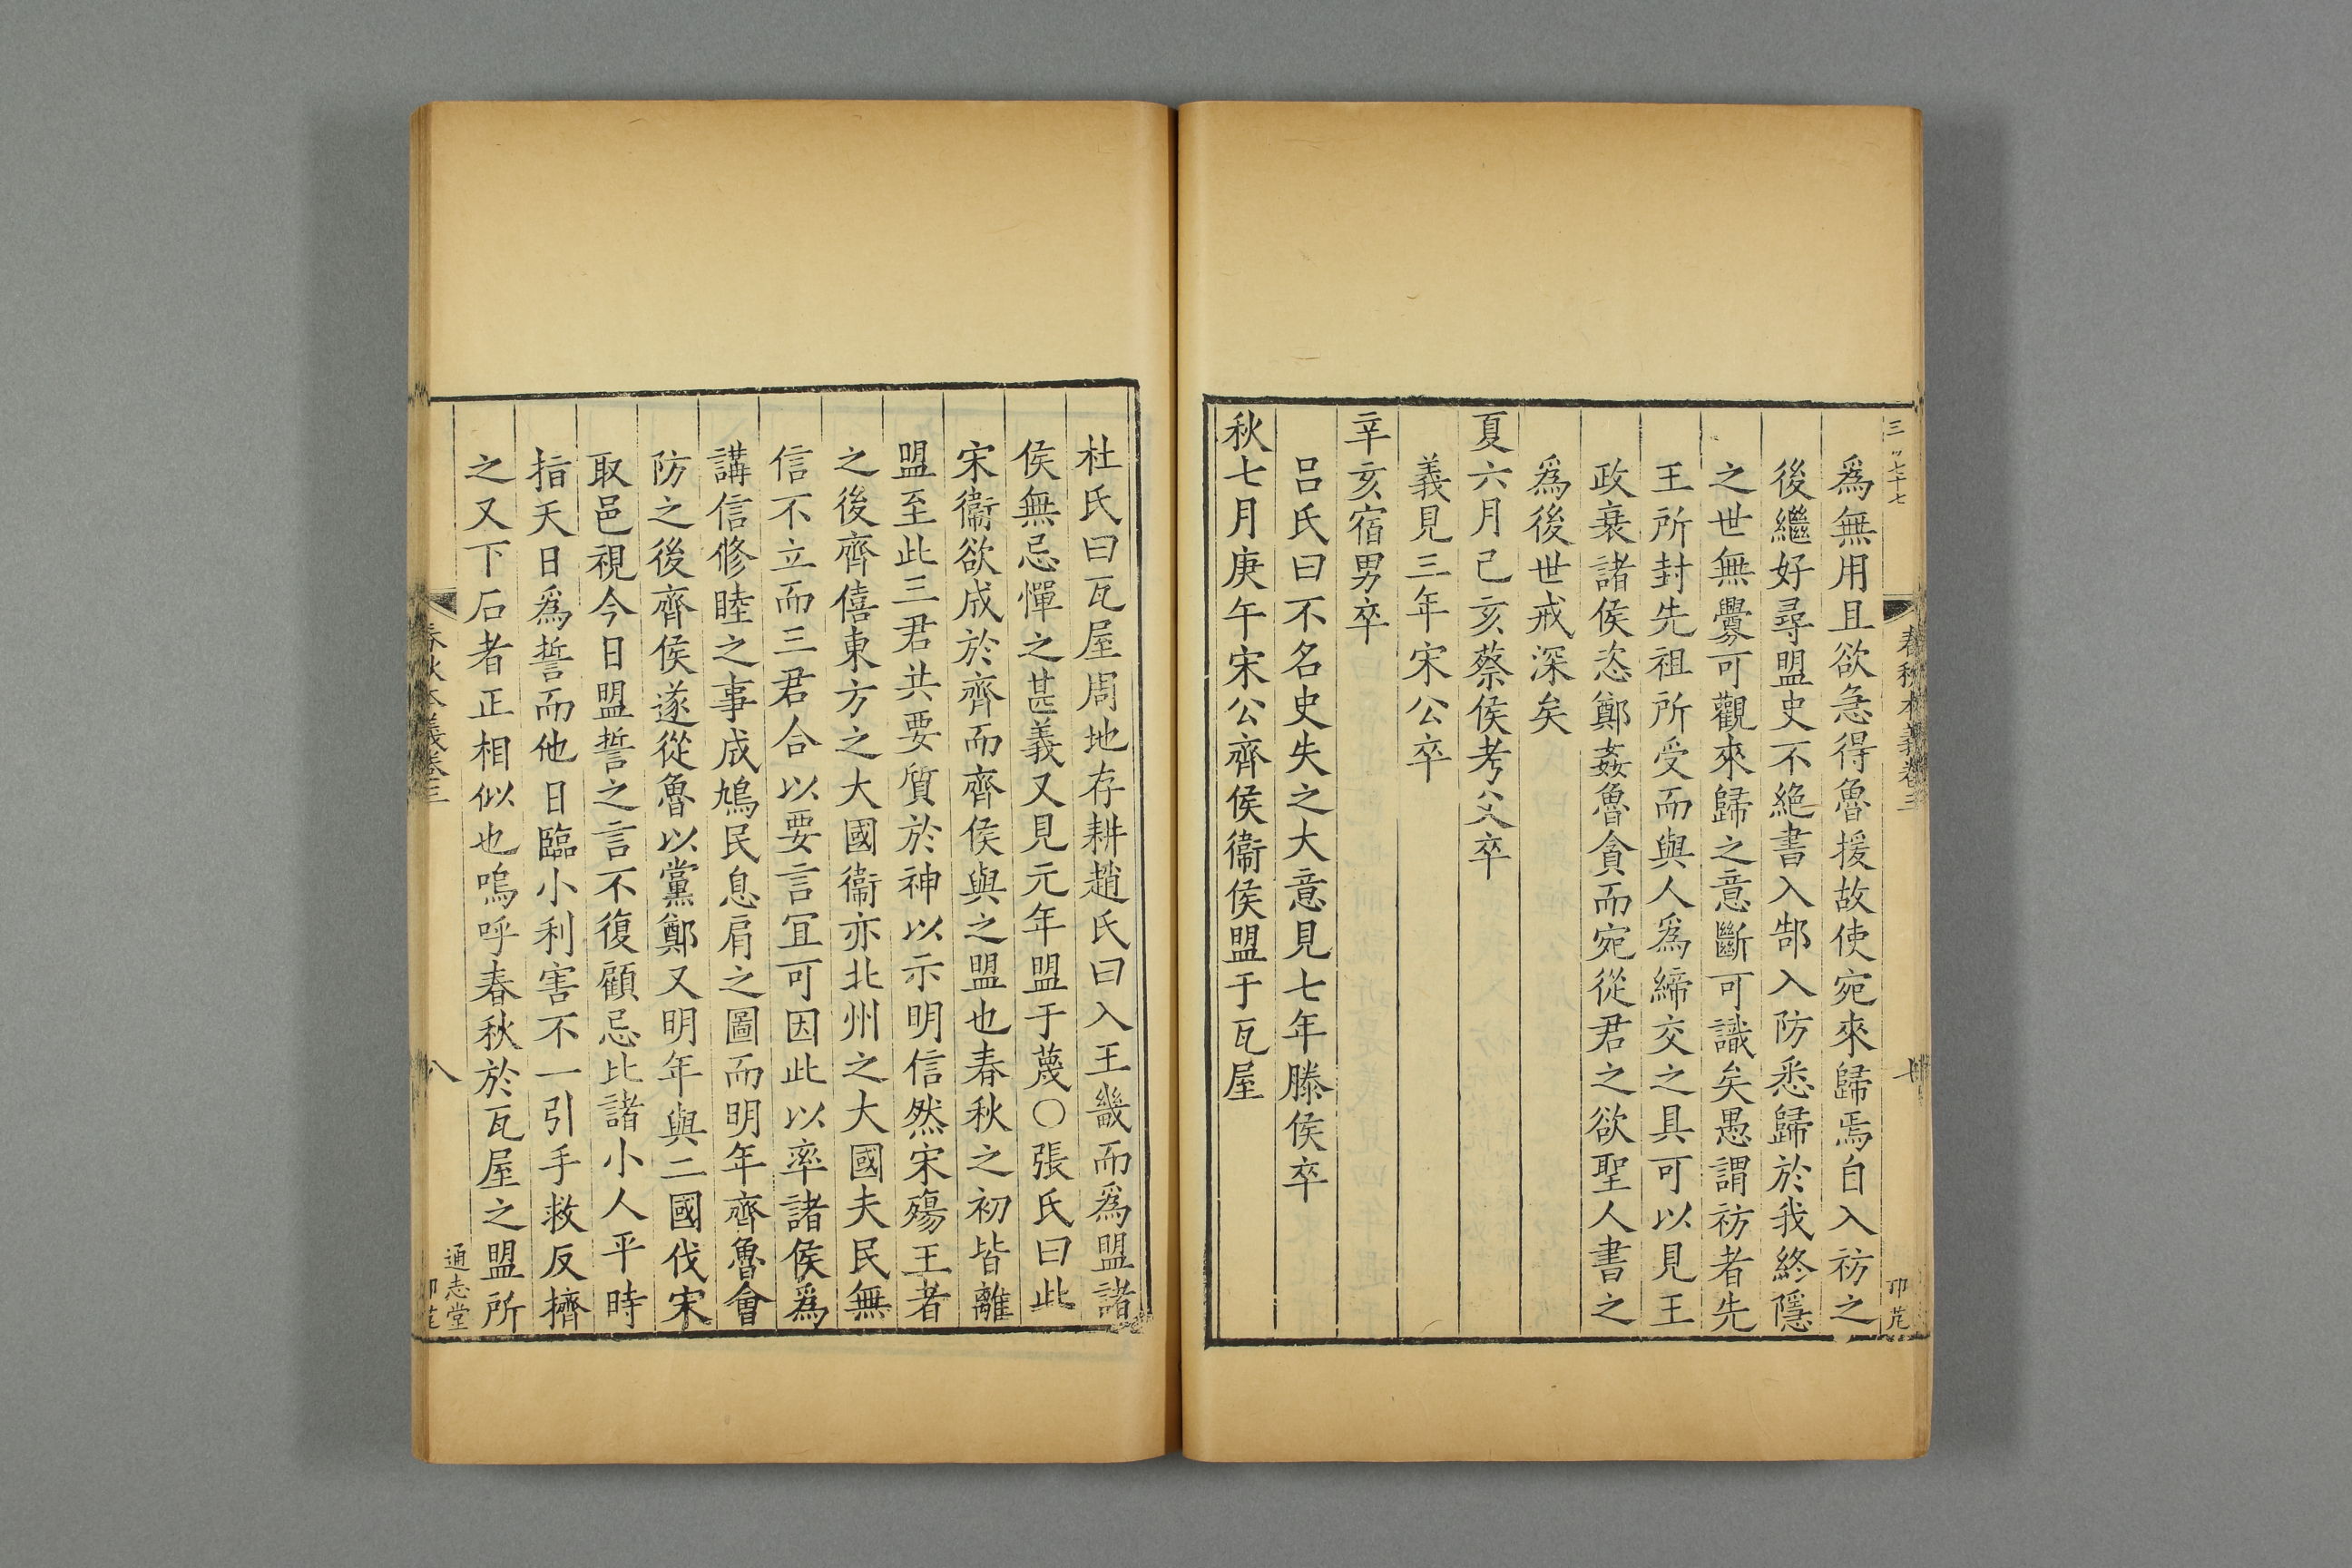 三百七十七
春秋本義卷三
卬芘
爲無用且欲急得魯援故使宛來歸焉自入祊之
後繼好尋盟史不絶書入郜入防悉歸於我終隱
之世無釁可觀來歸之意斷可識矣愚謂祊者先
王所封先祖所受而與人爲締交之具可以見王
政衰諸侯恣鄭姦魯貪而宛從君之欲聖人書之
爲後世戒深矣
夏六月己亥蔡侯考父卒
義見三年宋公卒
辛亥宿男卒
呂氏曰不名史失之大意見七年滕侯卒
秋七月庚午宋公齊侯衞侯盟于瓦屋
杜氏曰瓦屋周地存耕趙氏曰入王畿而爲盟諸
侯無忌憚之甚義又見元年盟于蔑○張氏曰此
宋衞欲成於齊而齊侯與之盟也春秋之初皆離
盟至此三君共要質於神以示明信然宋殤王者
之後齊僖東方之大國衞亦北州之大國夫民無
信不立而三君合以要言冝可因此以率諸侯爲
講信修睦之事成鳩民息肩之圖而明年齊魯會
防之後齊侯遂從魯以黨鄭又明年與二國伐宋
取邑視今日盟誓之言不復顧忌比諸小人平時
指天日爲誓而他日臨小利害不一引手救反擠
之又下石者正相似也嗚呼春秋於瓦屋之盟所
春秋本義卷三
八
通志堂